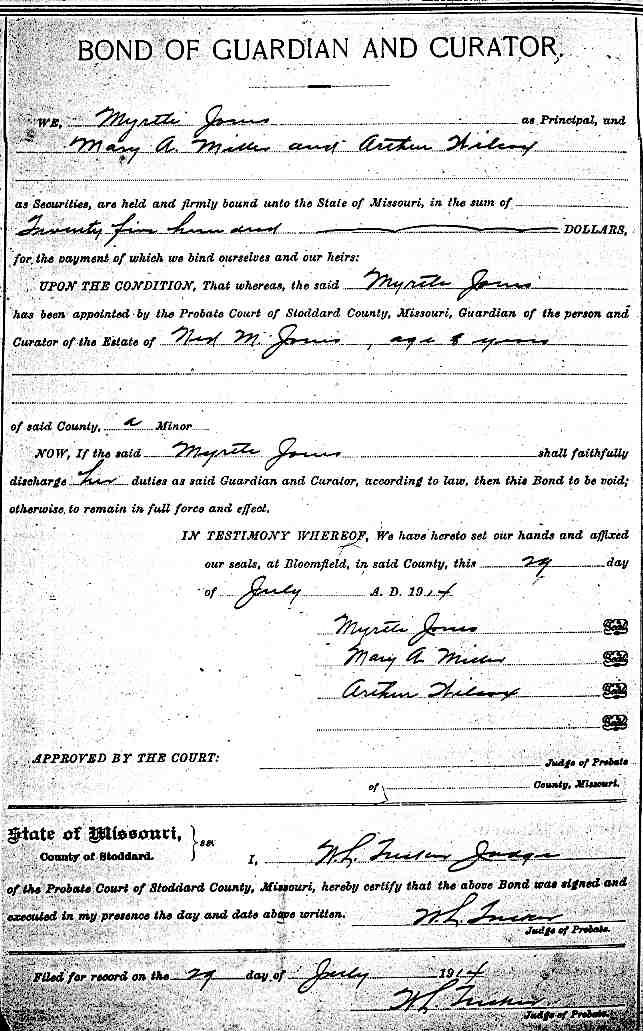 BOND OF GUARDIAN AND CURATOR.
WE, Myrtle Jones as Principal, and
Mary A. Miller and Arthur Wilcox
as Securities, are held and firmly bound unto the State of Missouri, in the sum of
Twenty five hundred DOLLARS,
for the payment of which we bind ourselves and our heirs:
UPON THE CONDITION, That whereas, the said Myrtle Jones
has been appointed by the Probate Court of Stoddard County, Missouri, Guardian of the person and
Curator of the Estate of Ned M. Jones, age 8 years
of said County, a Minor
NOW, If the said Myrtle Jones shall faithfully
discharge her duties as said Guardian and Curator, according to law, then this Bond to be void;
otherwise, to remain in full force and effect.
IN TESTIMONY WHEREOF, We have hereto set our hands and affixed
our seals, at Bloomfield, in said County, this 29 day
of July A. D. 1914
Myrtle Jones Seal
Mary A. Miller Seal
Arthur Wilcox Seal
Seal
APPROVED BY THE COURT: Judge of Probate
of County, Missouri.
State of Missouri, } ss.
County of Stoddard.
I, W. L. Tucker Judge
of the Probate Court of Stoddard County, Missouri, hereby certify that the above Bond was signed and
executed in my presence the day and date above written. W. L. Tucker
Judge of Probate.
Filed for record on the 29 day of July 1914
W L Tucker
Judge of Probate.